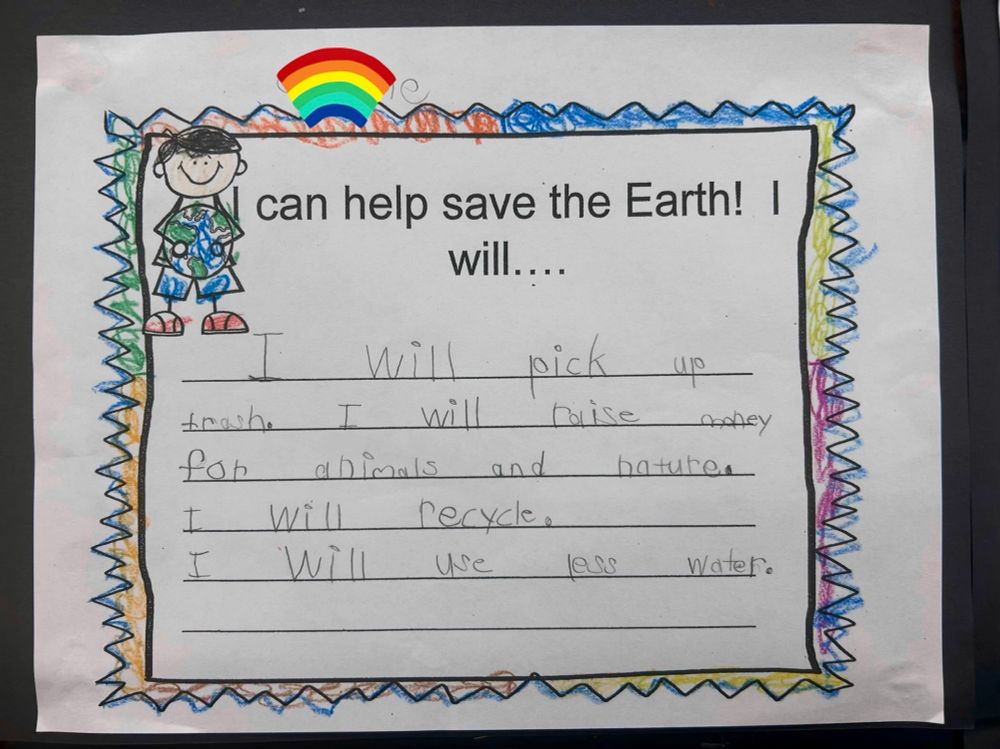 I can help save the Earth! I
will....
I will pick up
trash. I will raise money
for animals and nature.
I will recycle.
I will use less water.